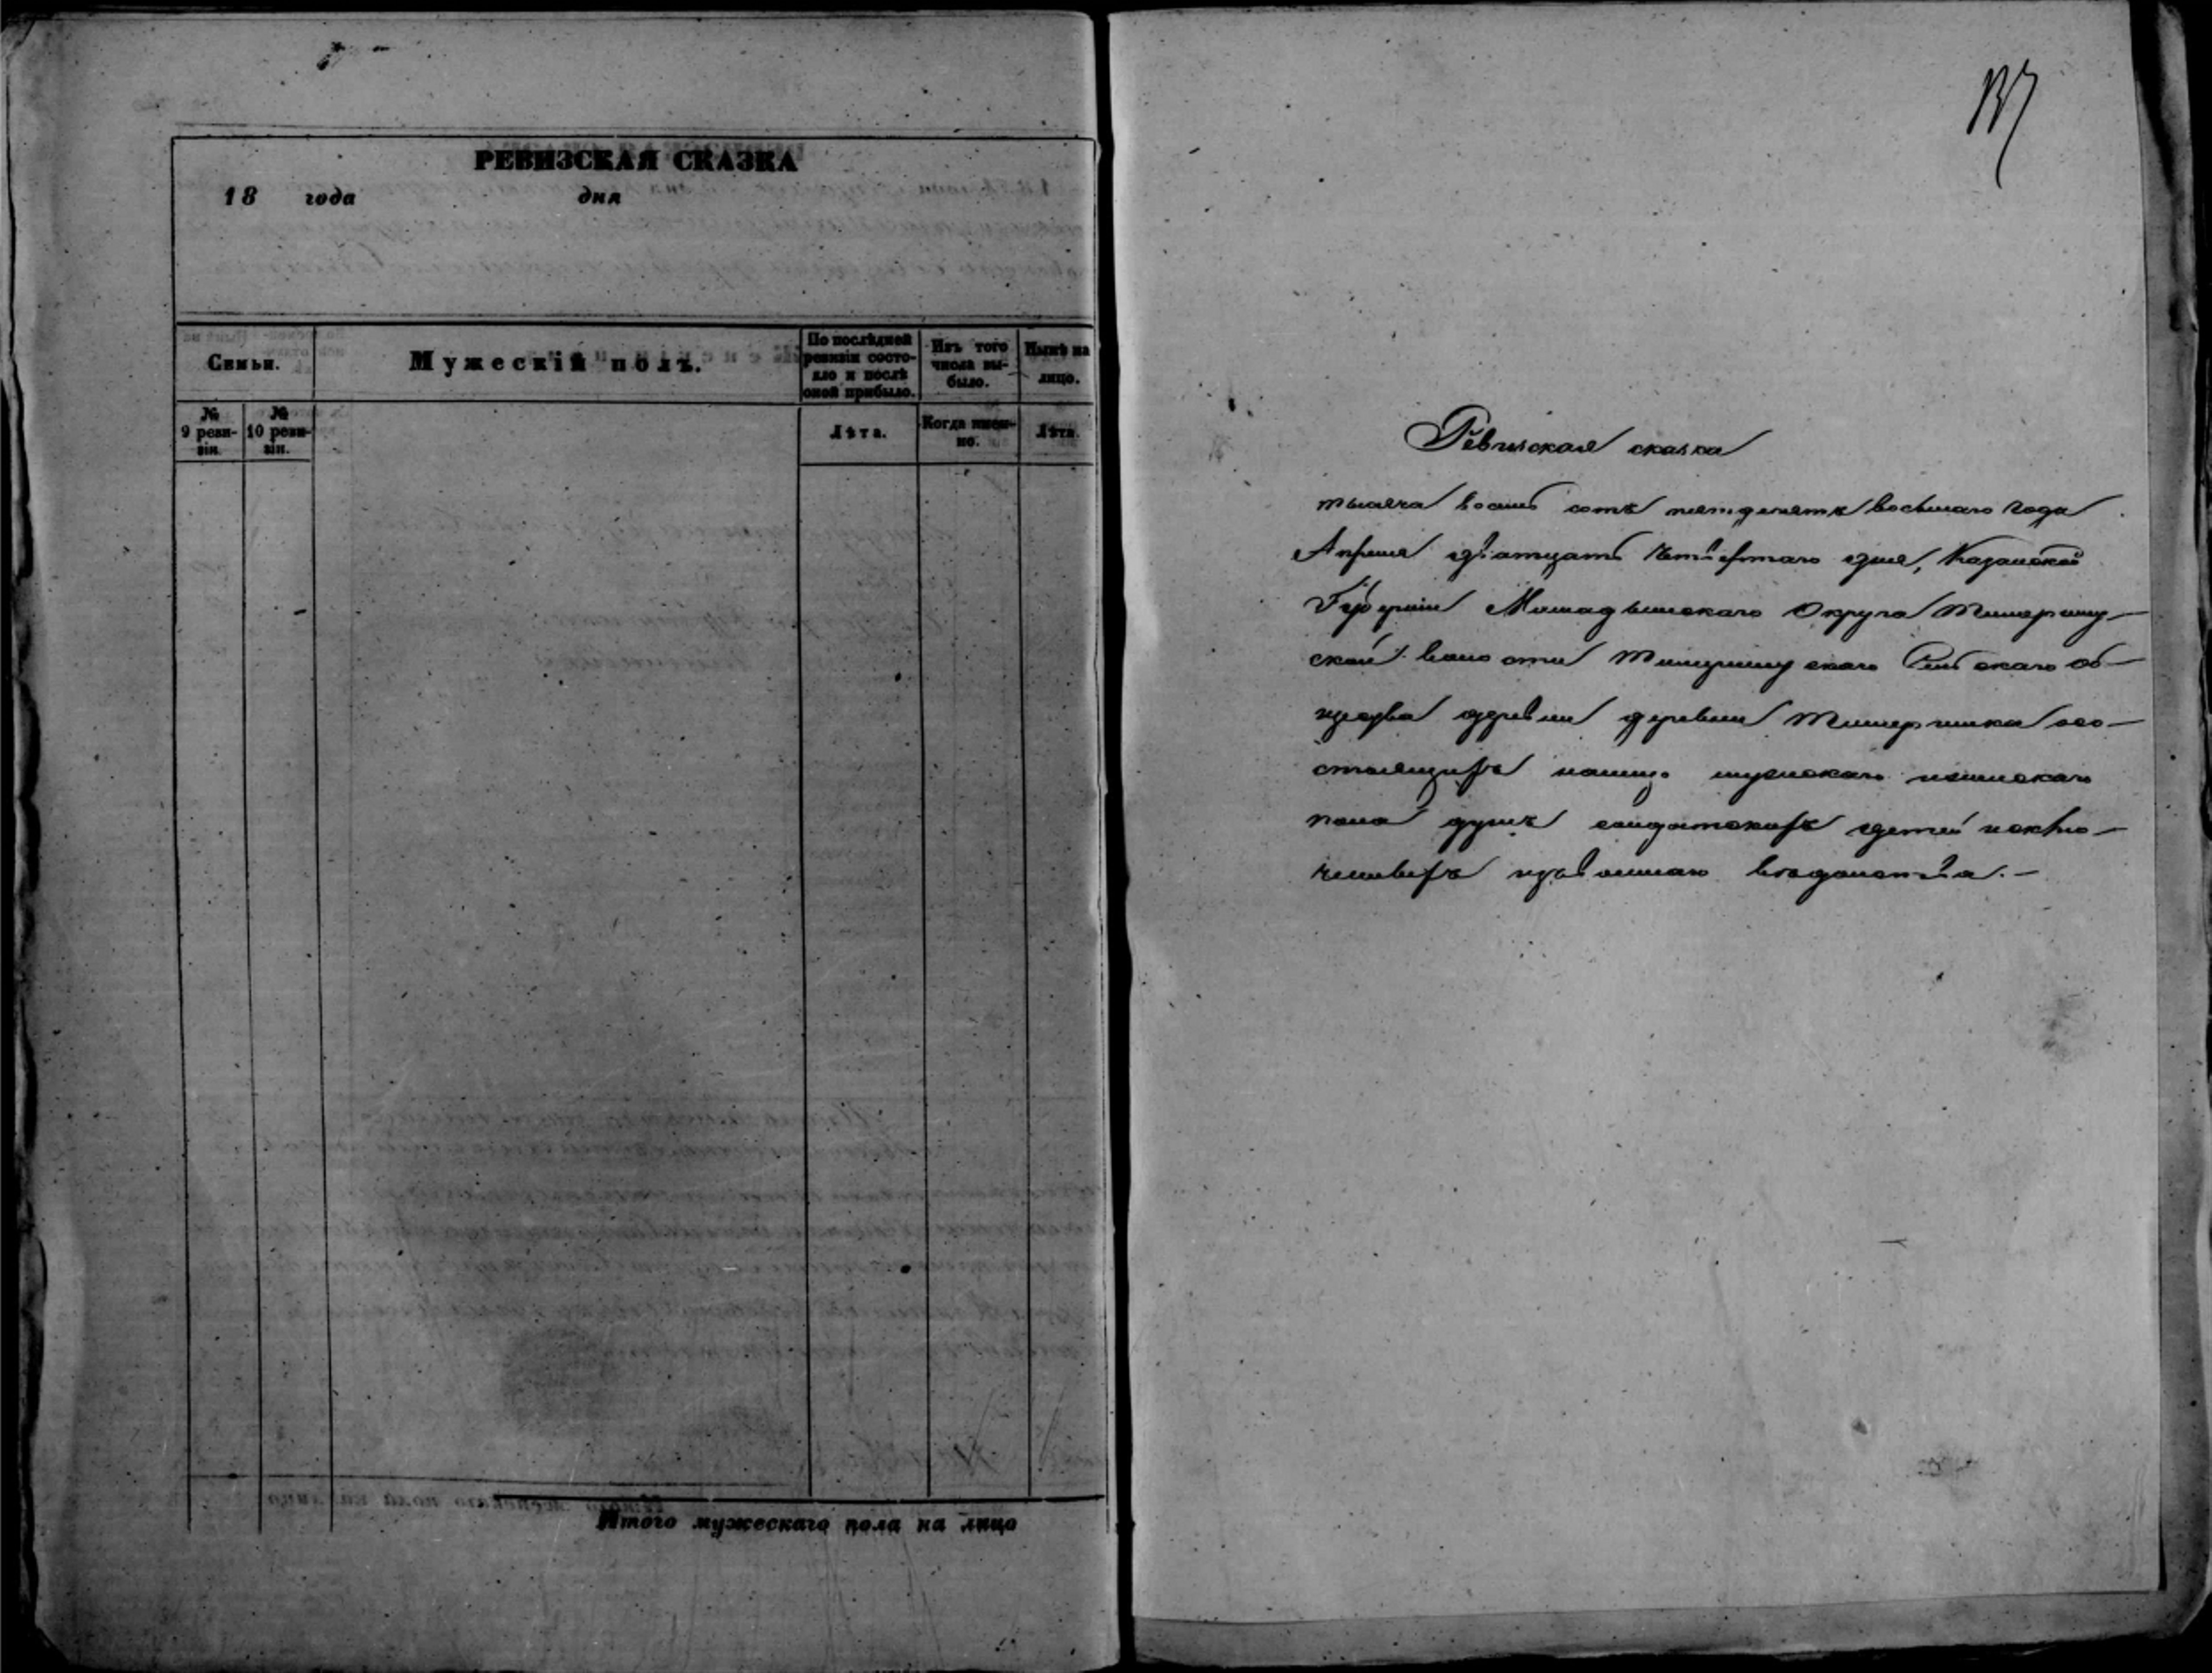 РЕВИЗСКАЯ СКАЗКА
18 года дня
Семьи.
Мужескій полъ.
По послѣдней ревизіи состояло и послѣ оной прибыло.
Изъ того числа выбыло.
Нынѣ на лицо.
№ 9 ревизіи.
№ 10 ревизіи.
Лѣта.
Когда именно.
Лѣта.
Итого мужескаго пола на лицо
137
Ревизская сказка
тысяча восемь сотъ пятдесятъ восьмаго года
Апреля дватцать четвертаго дня, Казанской
Губерніи Мамадышскаго Округа
ской волости Сельскаго об-
щества деревни деревни со-
стоящихъ налицо мужскаго иженскаго
пола душъ солдатскихъ детей исклю-
ченныхъ изъ военнаго ведомства.-